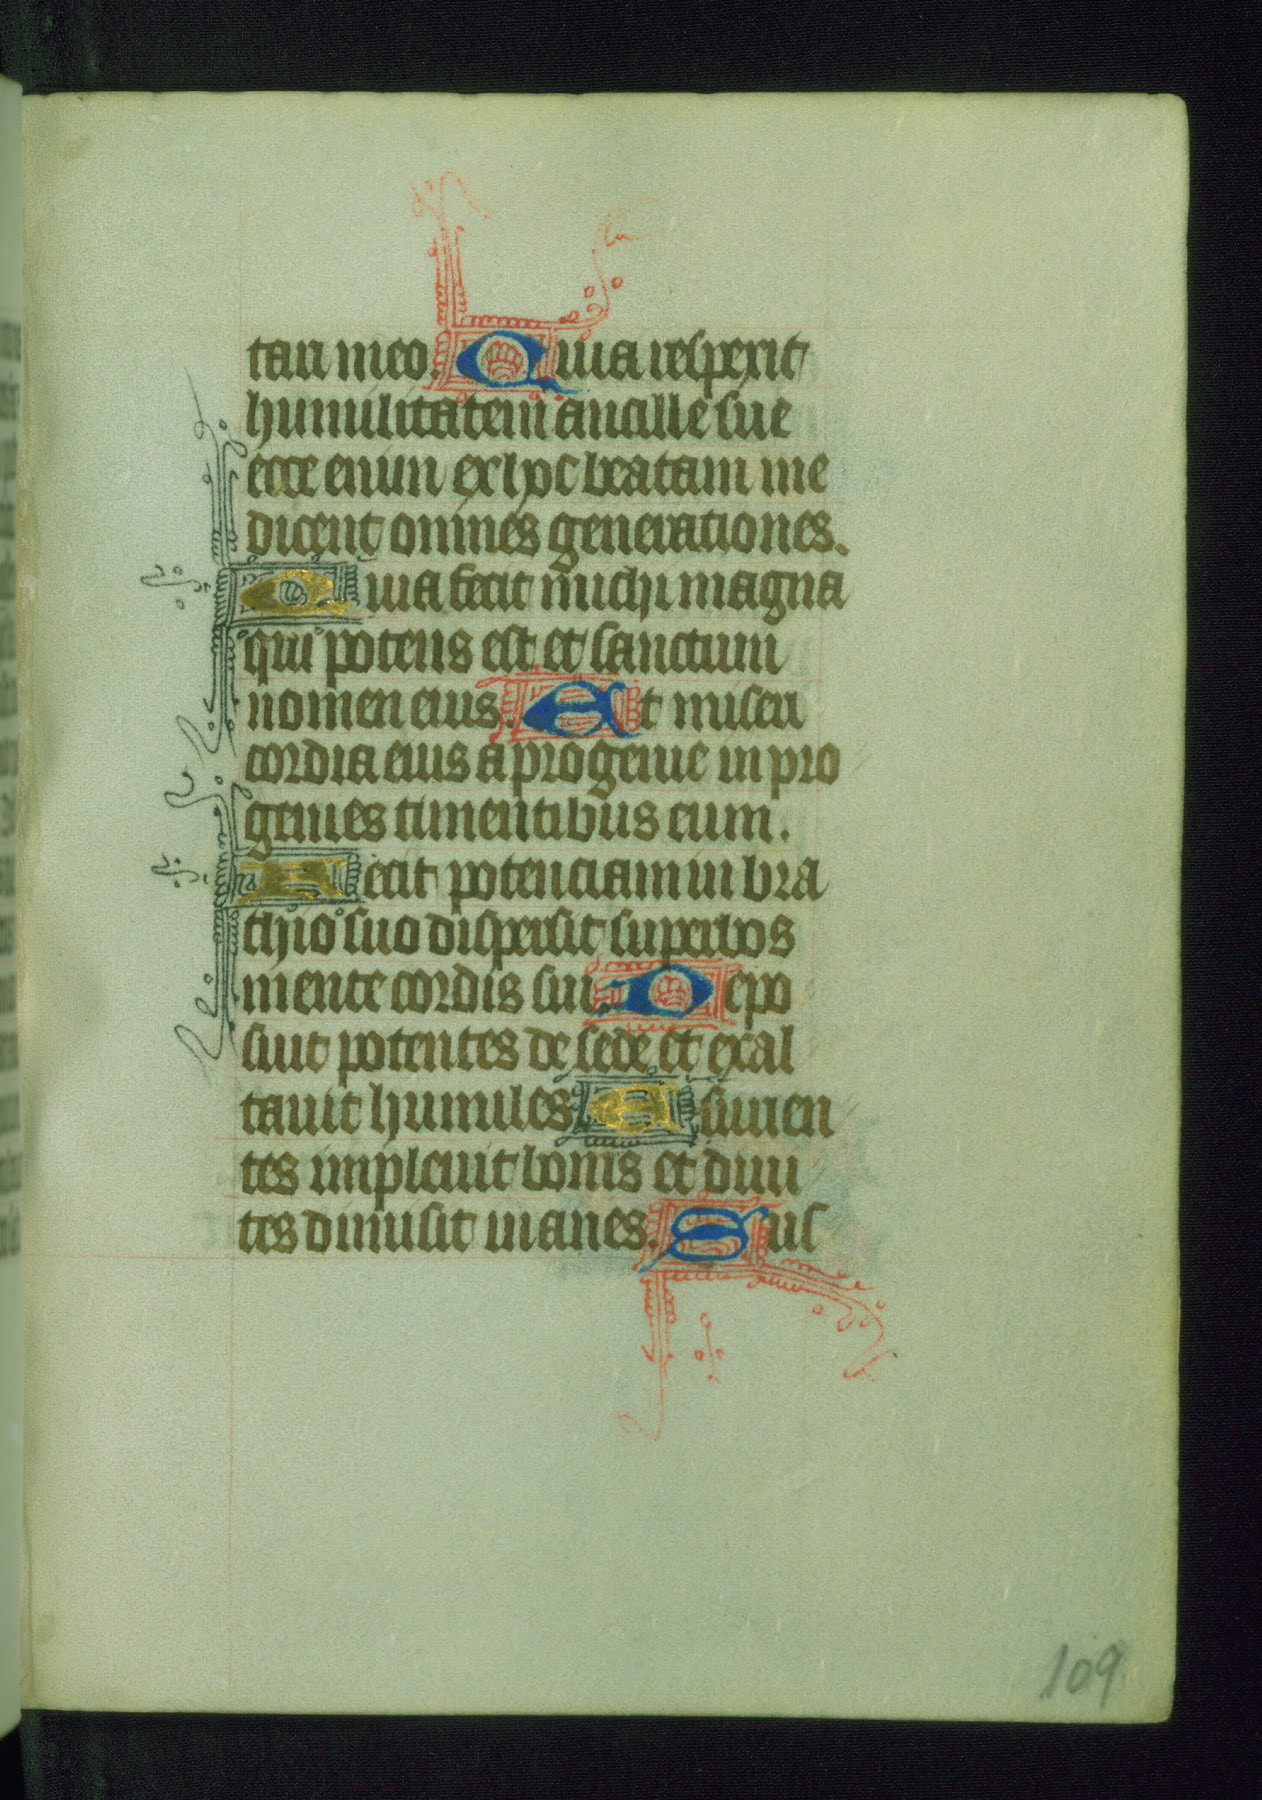 tari meo. Quia respexit
humilitatem ancille sue
ecce enim ex hoc beatam me
dicent omnes generationes.
Quia fecit michi magna
qui potens est et sanctum
nomen eius. Et miseri
cordia eius a progenie in pro
genies timentibus eum.
Fecit potenciam in bra
chio suo dispersit superbos
mente cordis sui. Depo
suit potentes de sede et exal
tavit humiles Esurien
tes implevit bonis et divi
tes dimisit inanes. Sus
109